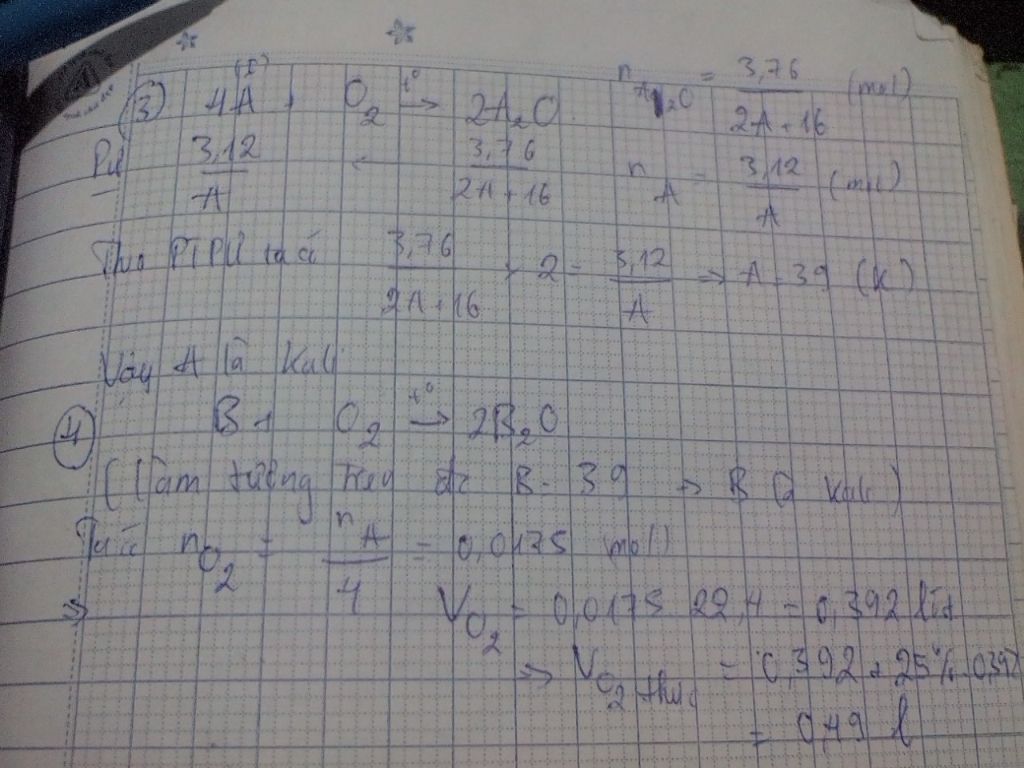 (I)
③ 4A + O₂ t° → 2A₂O n A₂O = 3,76 / 2A+16 (mol)
PƯ 3,12 / A ← 3,76 / 2A+16 n A = 3,12 / A (mol)
Theo PTPƯ ta có 3,76 / 2A+16 . 2 = 3,12 / A → A = 39 (K)
Vậy A là Kali
④ B + O₂ t° → 2B₂O
(Làm tương tự đc B = 39 → B là Kali)
Ta có n O₂ = n A / 4 = 0,0175 (mol)
⇒ V O₂ = 0,0175 . 22,4 = 0,392 lít
⇒ V O₂ thực = 0,392 + 25% . 0,392
= 0,49 l